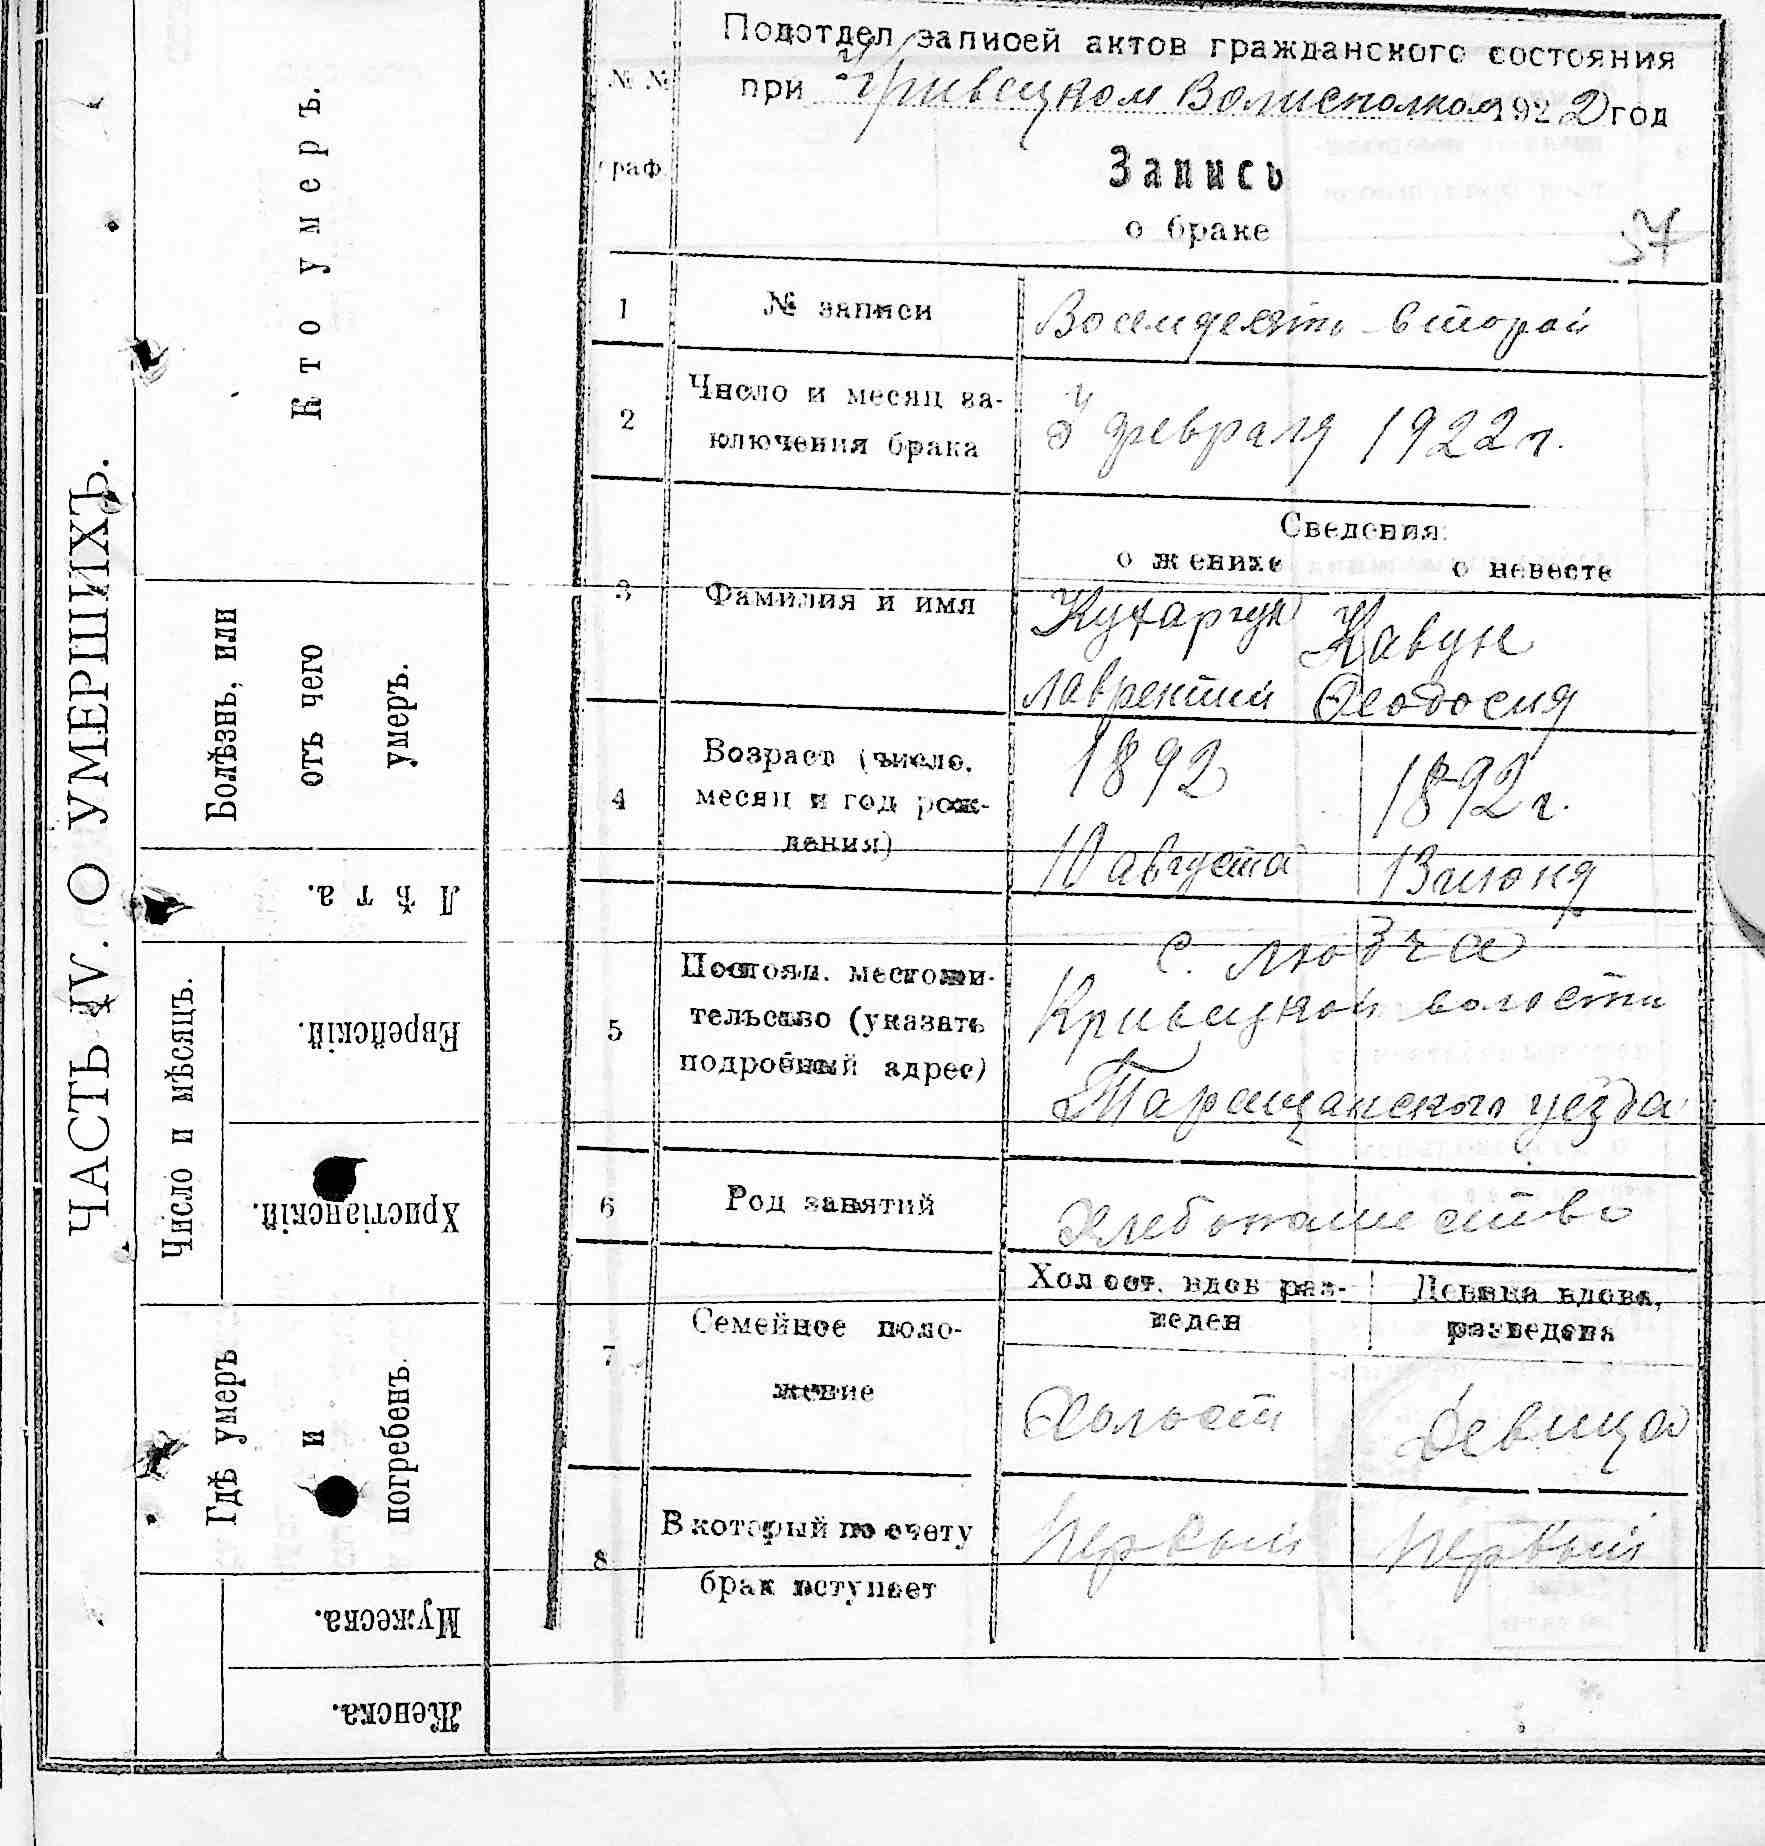 ЧАСТЬ IV. О УМЕРШИХЪ.
Кто умеръ.
Болѣзнь, или
отъ чего
умеръ.
Лѣта.
Число и мѣсяцъ.
Еврейскій.
Христіанскій.
Гдѣ умеръ
и
погребенъ.
Мужеска.
Женска.
№ №
граф
Подотдел записей актов гражданского состояния
при Кривецком Волисполкоме 1922 год
Запись
о браке
37
1 № записи Восемдесять второй
2 Число и месяц за-
ключения брака
февраля 1922 г.
Сведения:
о женихе о невесте
3 Фамилия и имя
Кухарчук Кавун
Лаврентий Феодосия
4 Возраст (число,
месяц и год рож-
дения)
1892 1892 г.
10 августа 13 июня
5 Постоян. местожи-
тельсво (указать
подробный адрес)
с. Лобча
Кривецкой волости
Таращанского уезда
6 Род занятий Хлебопашество
7 Семейное поло-
жение
Холост. вдов раз-
веден
Девица вдова,
разведена
Холост Девица
8 В который по счету
брак вступает
Первый Первый